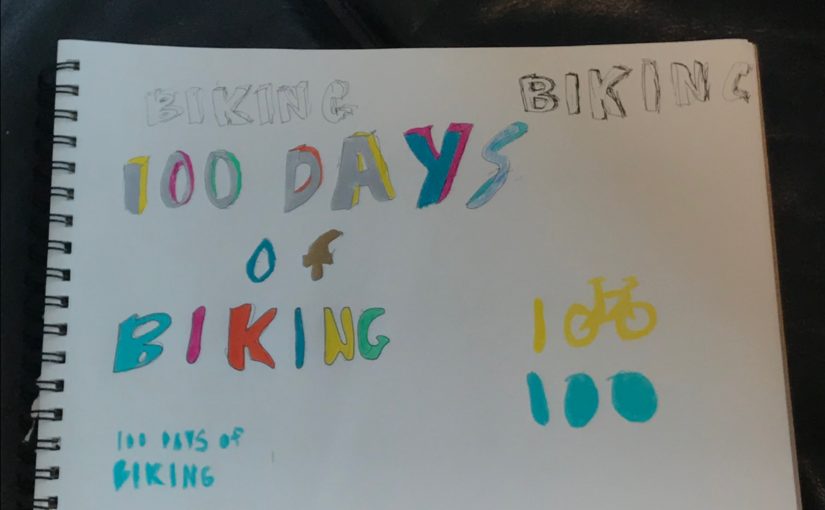 BIKING
BIKING
100 DAYS
of
BIKING
1
100
100 DAYS of
BIKING